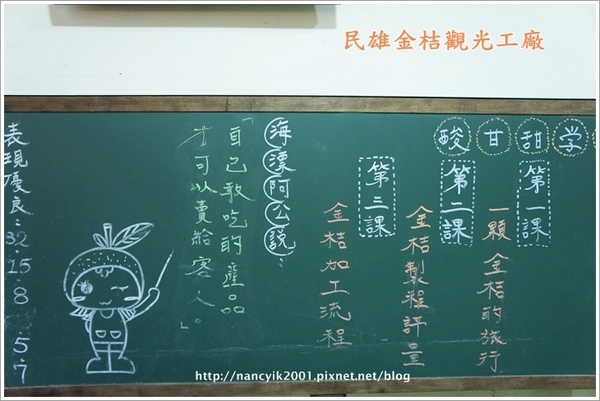 民雄金桔觀光工廠
酸甘甜学
第一課
一顆金桔的旅行
第二課
金桔製程評量
第三課
金桔加工流程
海漂阿公說：
「自己敢吃的產品
才可以賣給客人。」
表現優良：32.15.8
5.7
http://nancyik2001.pixnet.net/blog